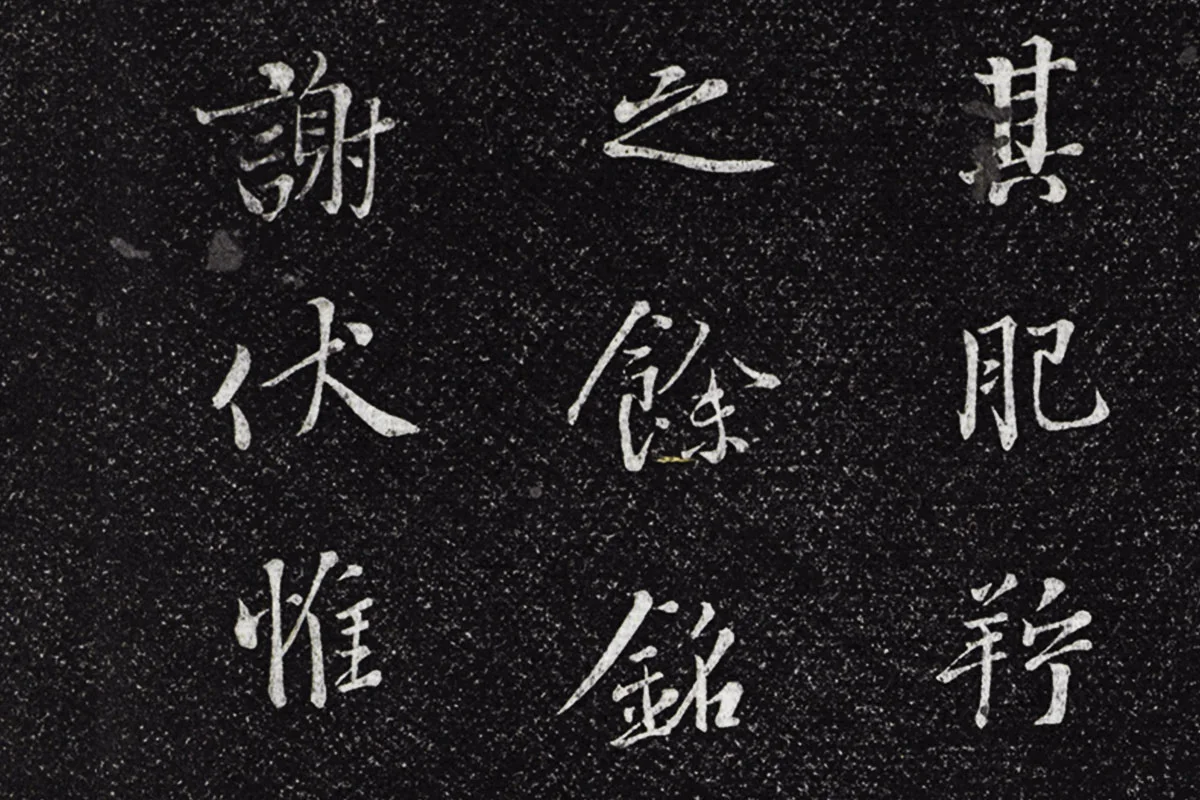 其肥羜
之餘銘
謝伏惟